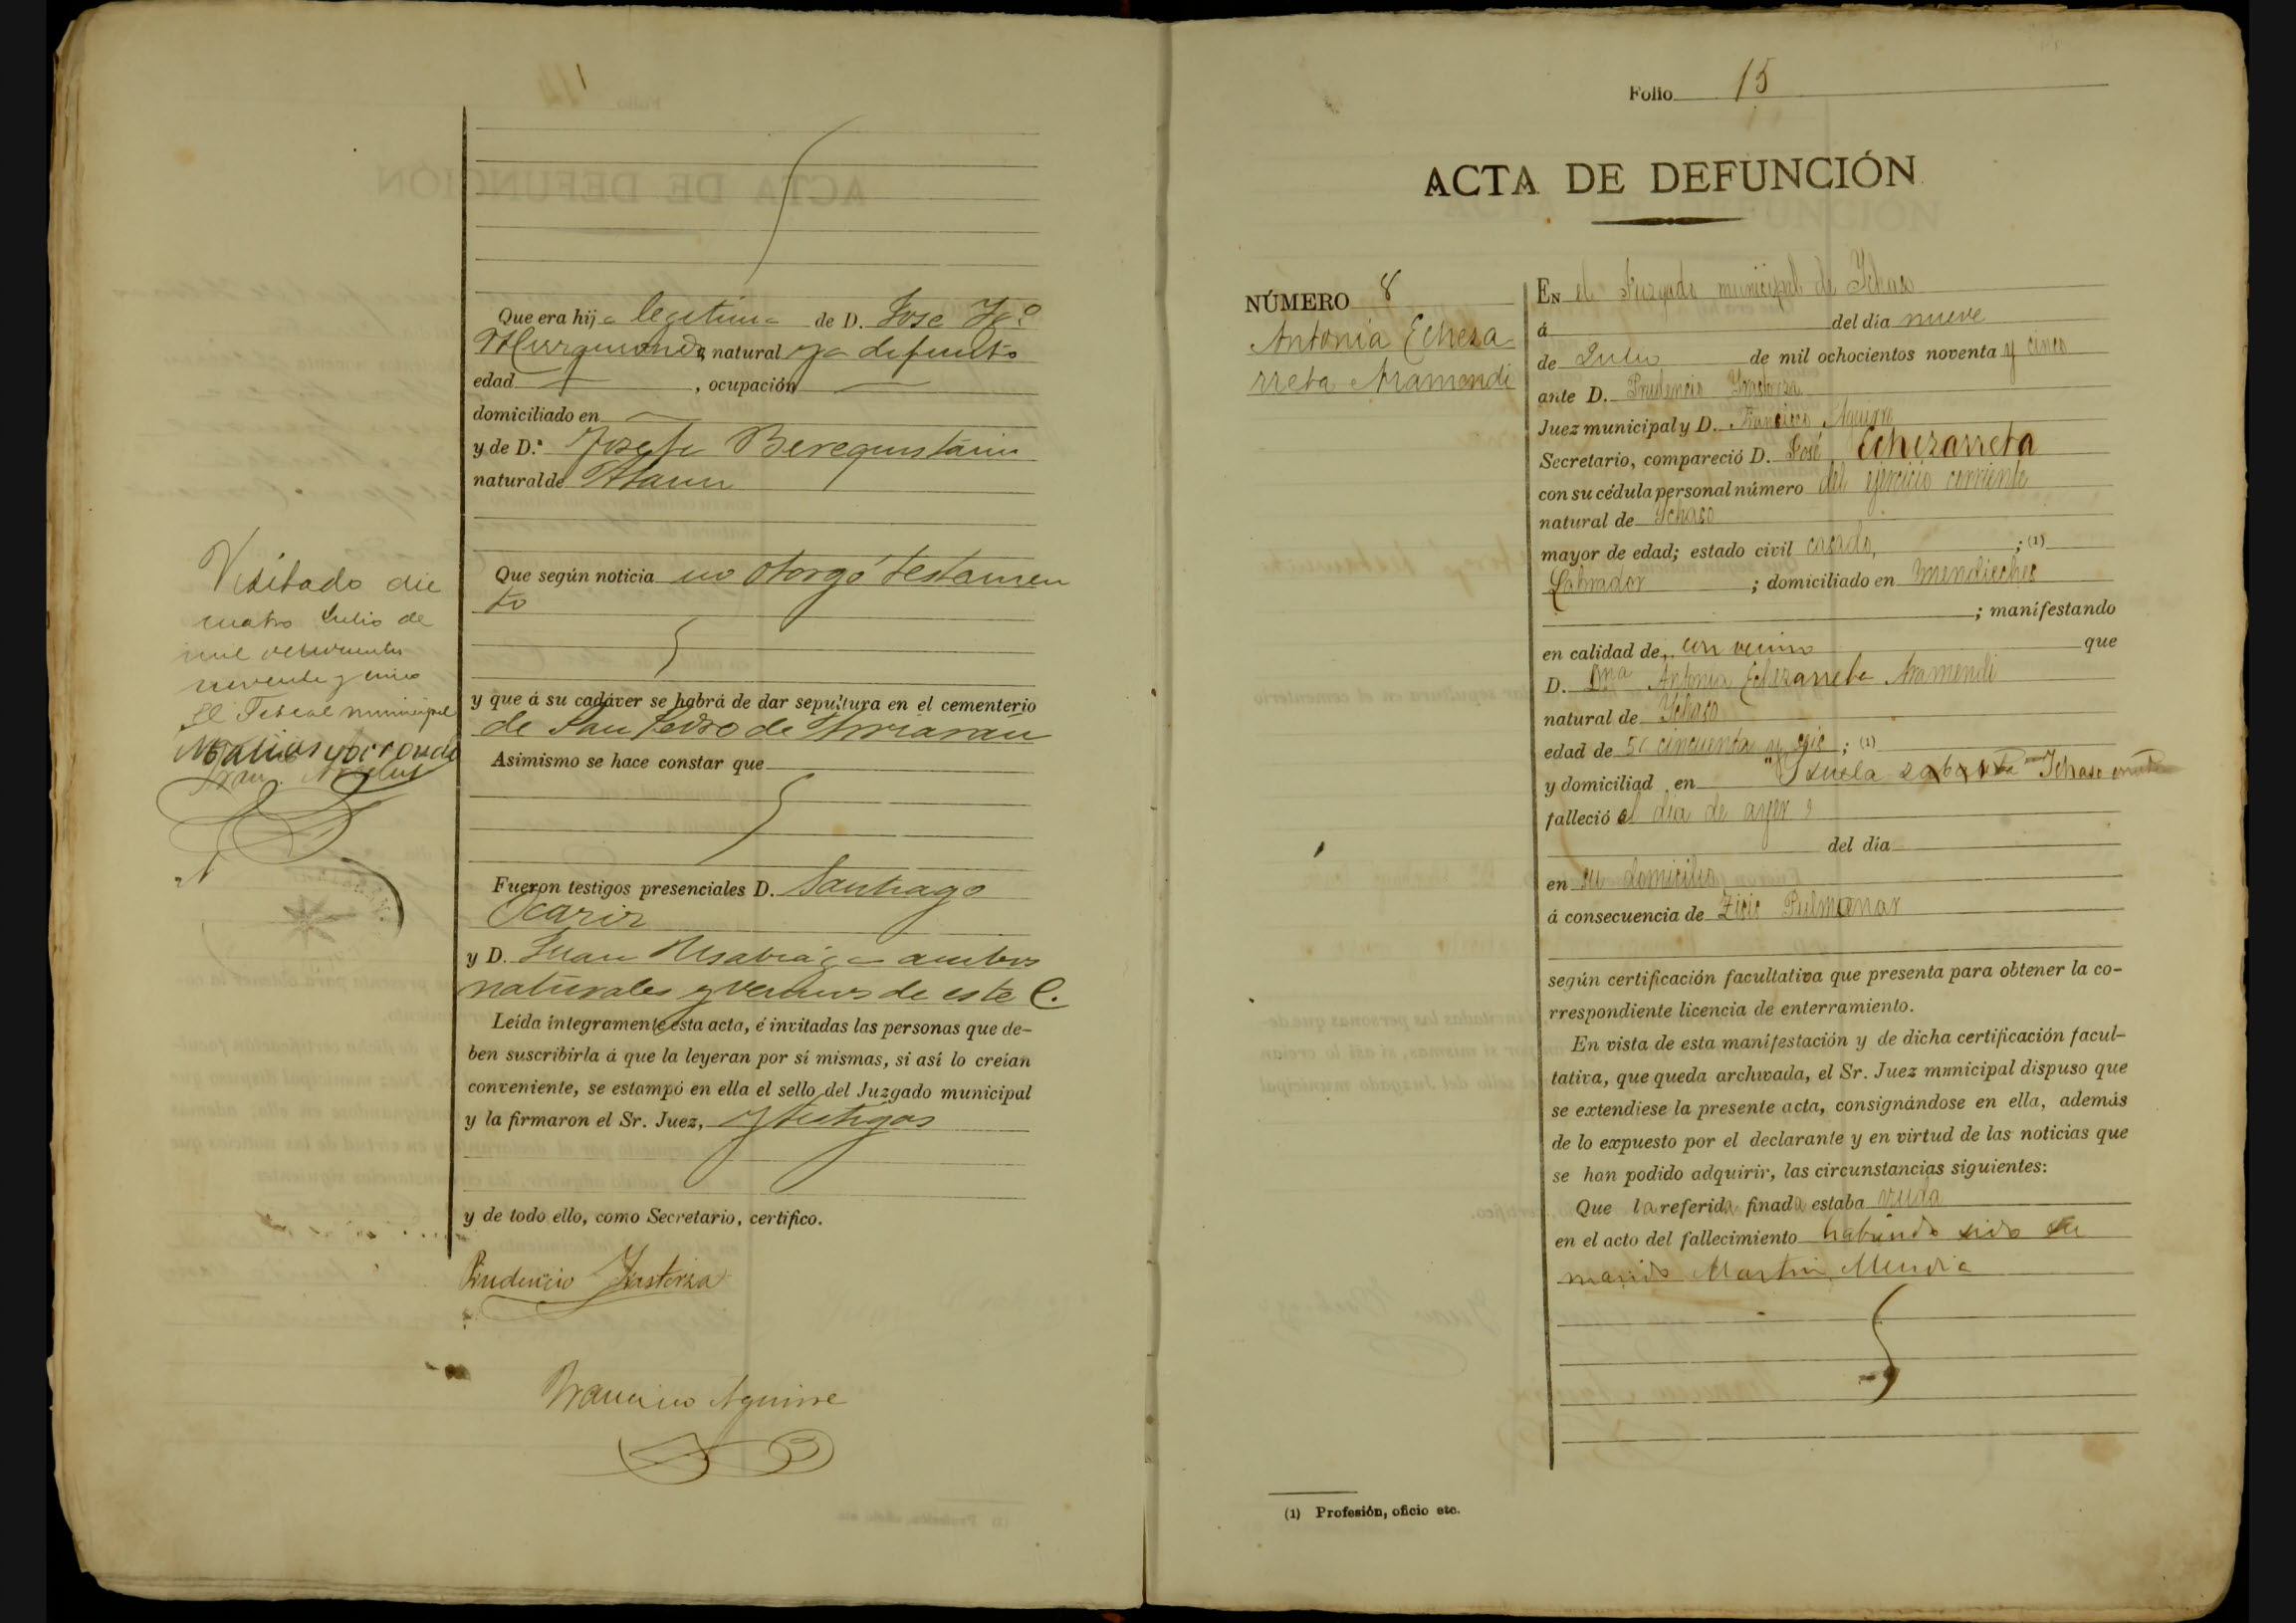 Que era hija legitima de D. Jose Fco
Murguiondo, natural ya defunto
edad , ocupación
domiciliado en
y de D.ª Josefa Bereguistain
natural de Ataun
Que según noticia no otorgó testamen
to
y que á su cadáver se habrá de dar sepultura en el cementerio
de San Pedro de Arriaran
Asimismo se hace constar que
Fueron testigos presenciales D. Santiago
Ocariz
y D. Juan Usabiaga ambos
naturales y vecinos de este C.
Leída íntegramente esta acta, é invitadas las personas que de-
ben suscribirla á que la leyeran por sí mismas, si así lo creían
conveniente, se estampó en ella el sello del Juzgado municipal
y la firmaron el Sr. Juez, y testigos
y de todo ello, como Secretario, certifico.
Prudencio Irastorza
Francisco Aguirre
Visitado
cuatro Julio de
mil ochocientos
noventa y cinco
El Fiscal municipal
Folio 15
ACTA DE DEFUNCIÓN
NÚMERO 8
Antonia Echeza
rreta Aramendi
EN el Juzgado municipal de Ichaso
á del día nueve
de Julio de mil ochocientos noventa y cinco
ante D. Prudencio Irastorza
Juez municipal y D. Francisco Aguirre
Secretario, compareció D. José Echezarreta
con su cédula personal número del ejercicio corriente
natural de Ichaso
mayor de edad; estado civil casado, ; (1)
Labrador ; domiciliado en
; manifestando
en calidad de con vecino que
D. Dña Antonia Echezarreta Aramendi
natural de Ichaso
edad de cincuenta y seis ; (1)
y domiciliad en Ichaso
falleció el dia de ayer
del día
en su domicilio
á consecuencia de Zisis Pulmonar
según certificación facultativa que presenta para obtener la co-
rrespondiente licencia de enterramiento.
En vista de esta manifestación y de dicha certificación facul-
tativa, que queda archivada, el Sr. Juez municipal dispuso que
se extendiese la presente acta, consignándose en ella, además
de lo expuesto por el declarante y en virtud de las noticias que
se han podido adquirir, las circunstancias siguientes:
Que la referida finada estaba viuda
en el acto del fallecimiento habiendo sido su
marido Martin Mendia
(1) Profesión, oficio etc.